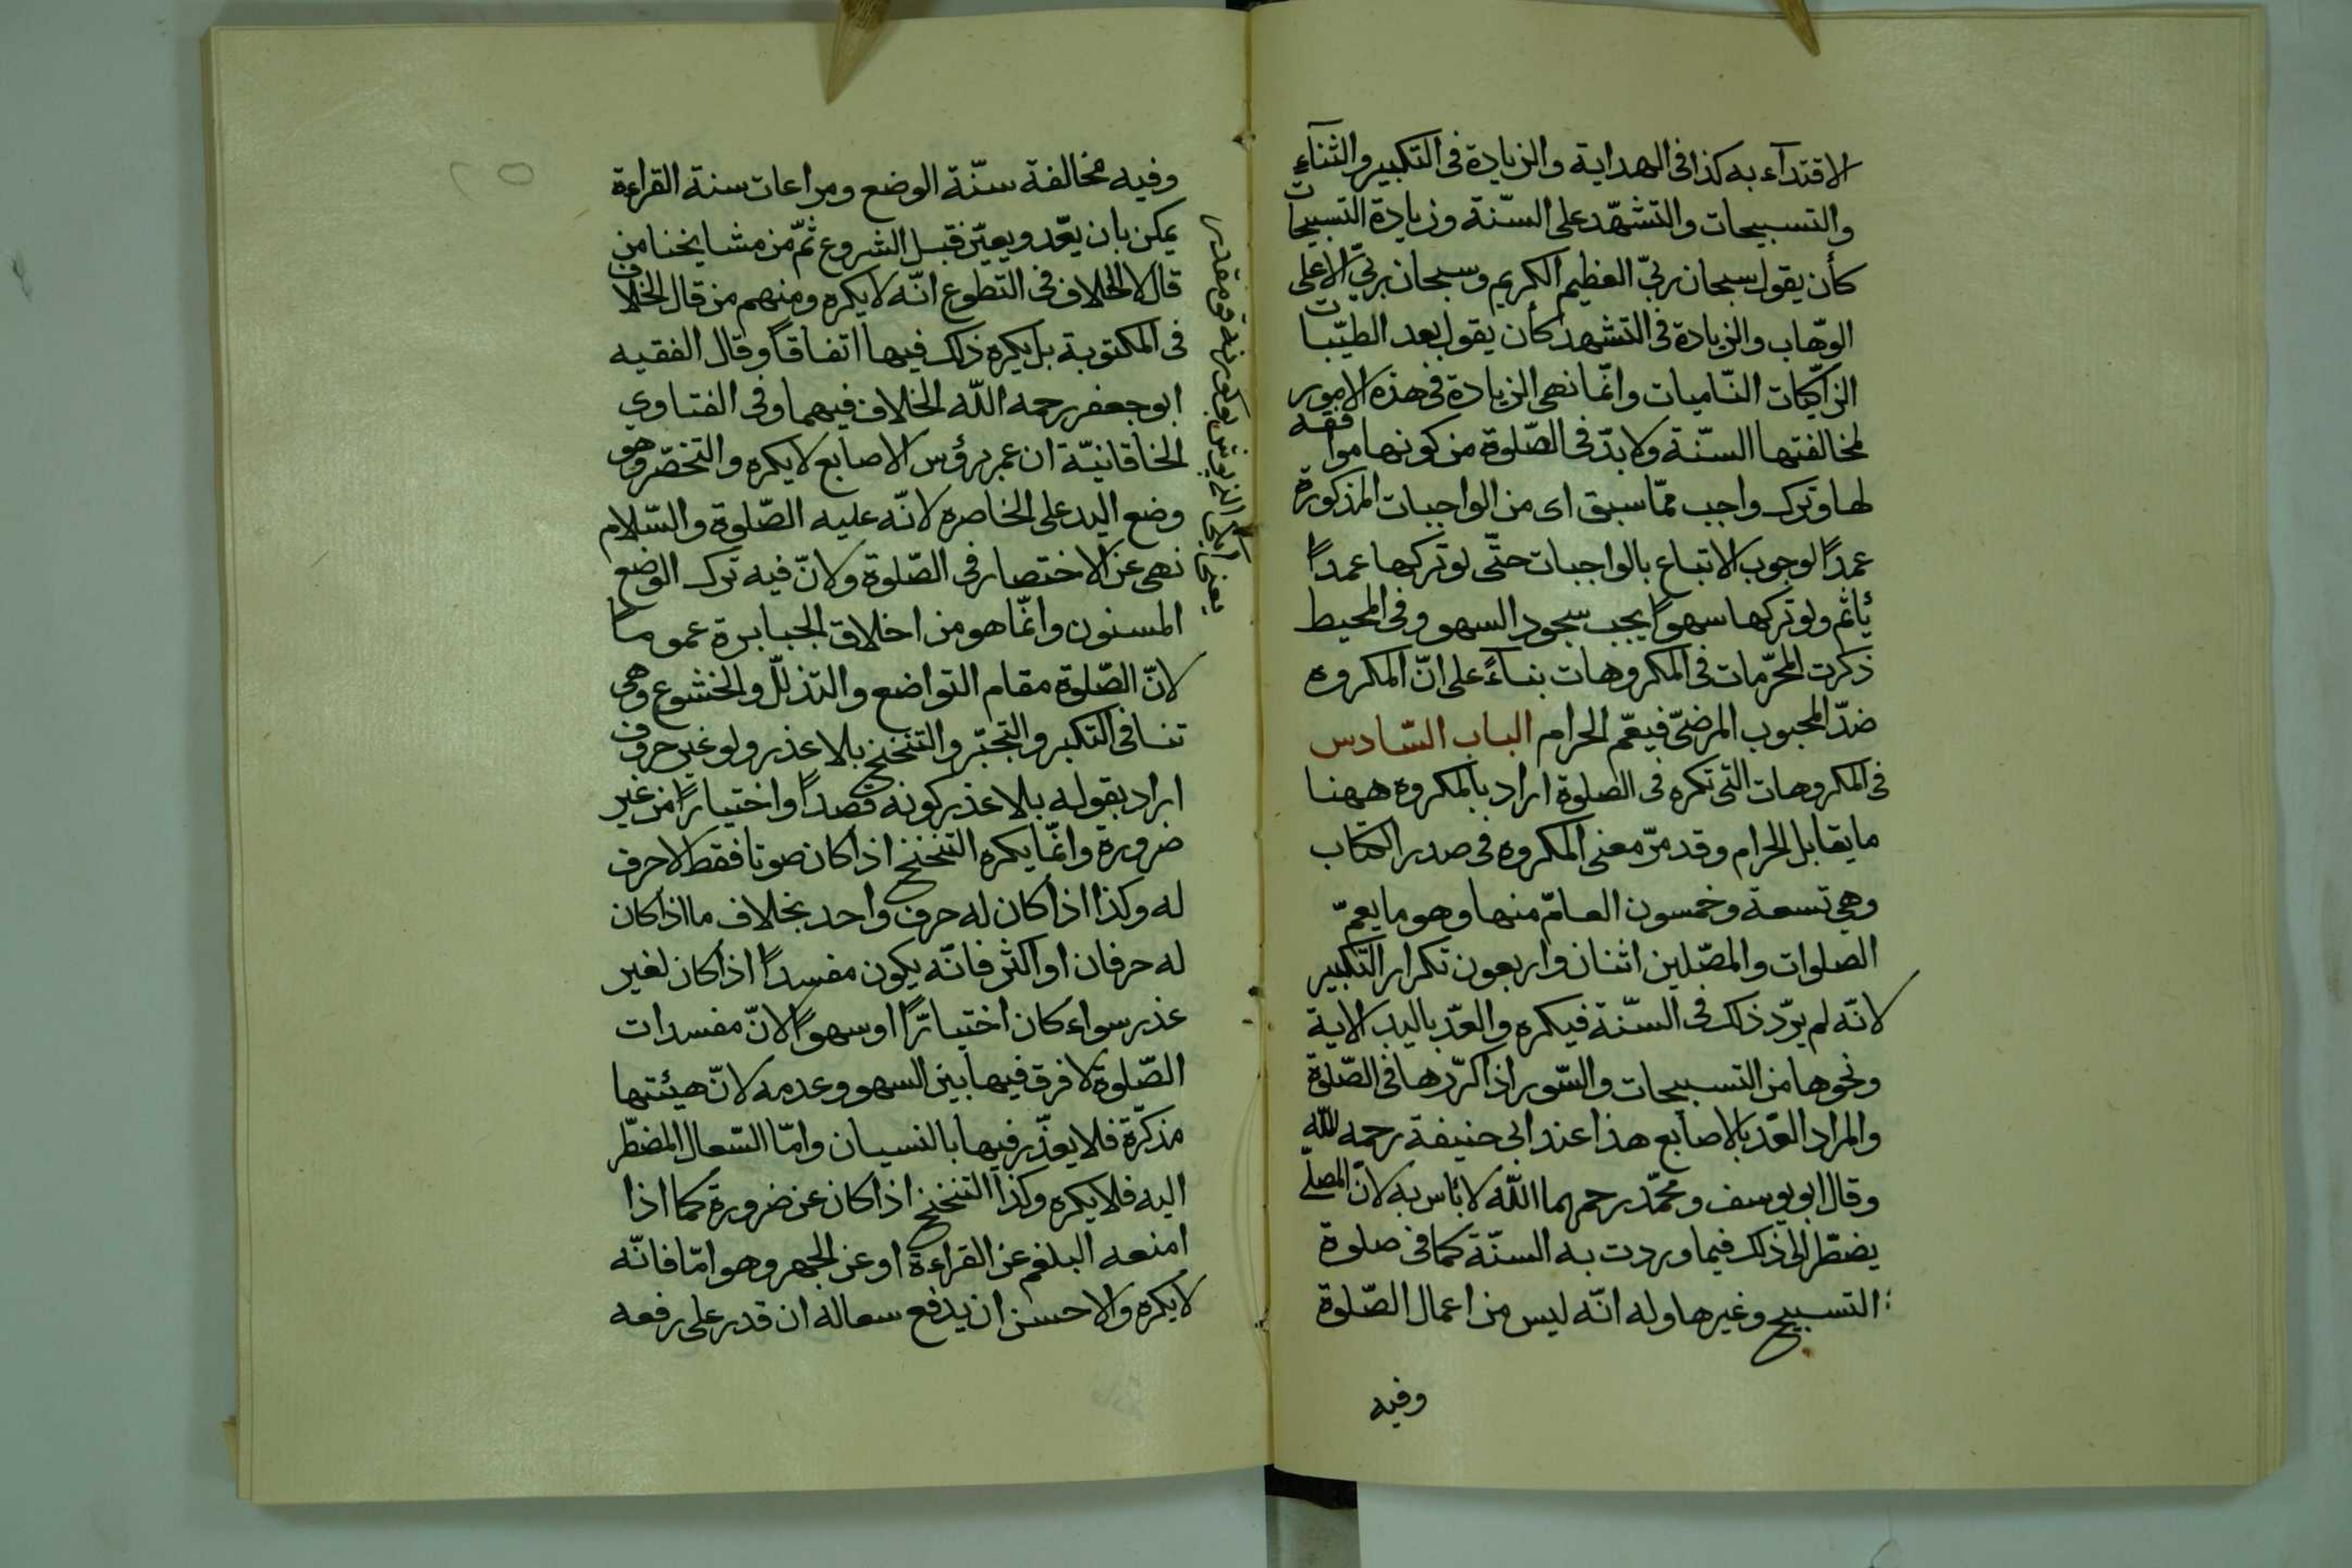 الاقتدآء به كذا فى الهداية والزيادة فى التكبير والثنآء
والتسبيحات والتشهّد على السّنة وزيادة التسبيحات
كأن يقول سبحان ربّي العظيم الكريم وسبحان ربّي الاعلى
الوهّاب والزيادة فى التشهد كأن يقول بعد الطيّبات
الزاكيات النّاميات وانّما نهى الزيادة فى هذه الامور
لمخالفتها السّنة ولا بدّ فى الصّلوة من كونها موافقة
لها وترك واجب ممّا سبق اى من الواجبات المذكورة
عمدًا لوجوب الاتباع بالواجبات حتّى لو تركها عمدًا
يأثم ولو تركها سهوًا يجب سجود السهو وفى المحيط
ذكرت المحرّمات فى المكروهات بنآءً على انّ المكروه
ضدّ المحبوب المرضىّ فيعمّ الحرام الباب السّادس
فى المكروهات التى تكره فى الصلوة اراد بالمكروه ههنا
ما يقابل الحرام وقد مرّ معنى المكروه فى صدر الكتاب
وهى تسعة وخمسون العامّ منها وهو ما يعمّ
الصلوات والمصّلين اثنان واربعون تكرار التّكبير
لانّه لم يرد ذلك فى السّنة فيكره والعدّ باليد الاية
ونحوها من التسبيحات والسّور اذا كرّرها فى الصّلوة
والمراد العدّ بالاصابع هذا عند ابى حنيفة رحمه الله
وقال ابو يوسف ومحمّد رحمهما اللّه لا بأس به لانّ المصلّى
يضطرّ الى ذلك فيما وردت به السنّة كما فى صلوة
التسبيح وغيرها وله انّه ليس من اعمال الصّلوة
وفيه
وفيه مخالفة سنّة الوضع ومراعات سنة القراءة
يمكن بان يعّد ويعيّن قبل الشروع ثمّ من مشايخنا من
قال لا خلاف فى التطوع انّه لا يكره ومنهم من قال لا خلاف
فى المكتوبة بل يكره ذلك فيها اتفاقًا وقال الفقيه
ابو جعفر رحمه اللّه الخلاف فيهما وفى الفتاوى
الخاقانيّة ان غمز برؤس الاصابع لا يكره والتخصّر وهو
وضع اليد على الخاصره لانّه عليه الصّلوة والسّلام
نهى عن الاختصار فى الصّلوة ولانّ فيه ترك الوضع
المسنون وانّما هو من اخلاق الجبابرة عمومًا
لانّ الصّلوة مقام التواضع والتذلّل والخشوع وهى
تنافى التكبر والتجبّر والتنحنح بلا عذر ولو غير حروف
اراد بقوله بلا عذر كونه قصدًا واختيارًا من غير
ضرورة وانّما يكره التنحنح اذا كان صوتا فقط لا حرف
له وكذا اذا كان له حرف واحد بخلاف ما اذا كان
له حرفان او اكثر فانّه يكون مفسدًا اذا كان لغير
عذر سواء كان اختيارًا او سهوًا لانّ مفسدات
الصّلوة لا فرق فيها بين السهو وعدمه لانّ هيئتها
مذكّرة فلا يعذّر فيها بالنسيان وامّا السّعال المضطّر
اليه فلا يكره وكذا التنحنح اذا كان عن ضرورة كما اذا
امنعه البلغم عن القراءة او عن الجهر وهو امّا فانّه
لا يكره والاحسن ان يدفع سعاله ان قدر على رفعه